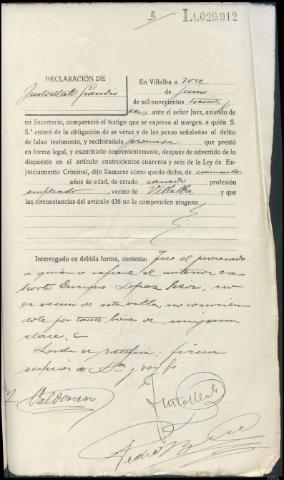 3
1.029.912
DECLARACIÓN DE
En Villalba a
de Junio
de mil novecientos treinta y
seis ante el señor Juez, asistido de
mi Secretario, compareció el testigo que se expresa al margen, a quién S.
S.ª enteró de la obligación de se veraz y de las penas señaladas al delito
de falso testimonio, y recibiéndole promesa que
prestó en forma legal, y examinado convenientemente, después de advertido de lo
dispuesto en el artículo cuatrocientos cuarenta y seis de la Ley de En-
juiciamiento Criminal, dijo llamarse como queda dicho, de cincuenta
años de edad, de estado casado profesión
empleado, vecino de Villalba, y que
las circunstancias del artículo 436 no le comprenden ninguna.
Interrogado en debida forma, contesta: Que el procesado
a quien se refiere el anterior ex
horto Enrique López, no
es vecino de esta villa, no conocien
dole por tanto bienes de ninguna
clase.
Leída se ratifica; firma
después de S.Sª, doy fe
Valderas
Pedro